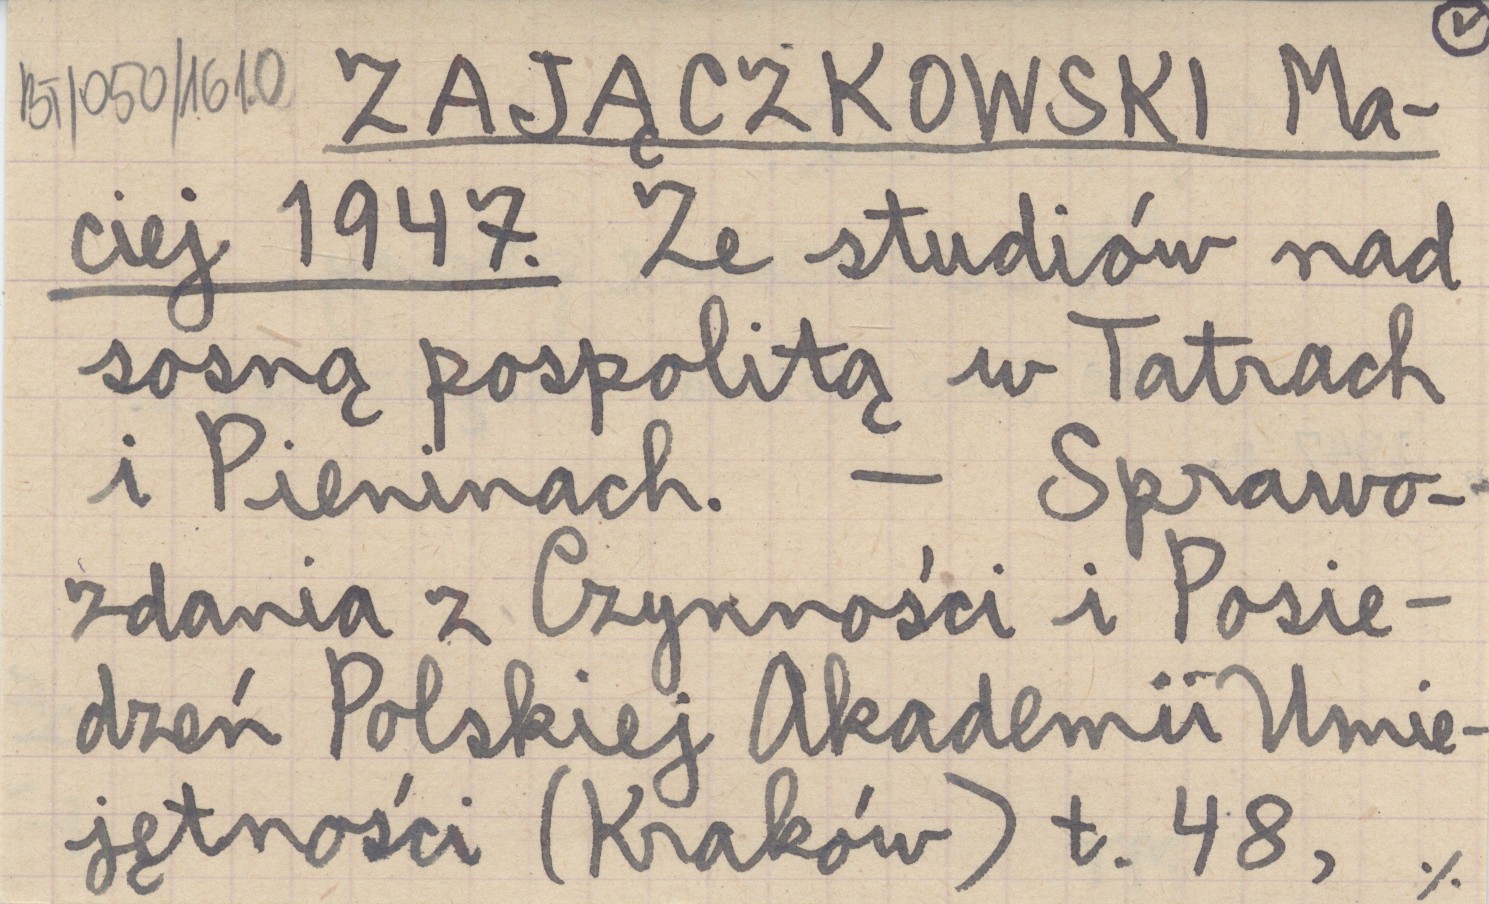 BT/050/1610 ZAJĄCZKOWSKI Ma-
ciej 1947. Ze studiów nad
sosną pospolitą w Tatrach
i Pieninach. — Sprawo-
zdania z Czynności i Posie-
dzeń Polskiej Akademii Umie-
jętności (Kraków) t. 48, ./.